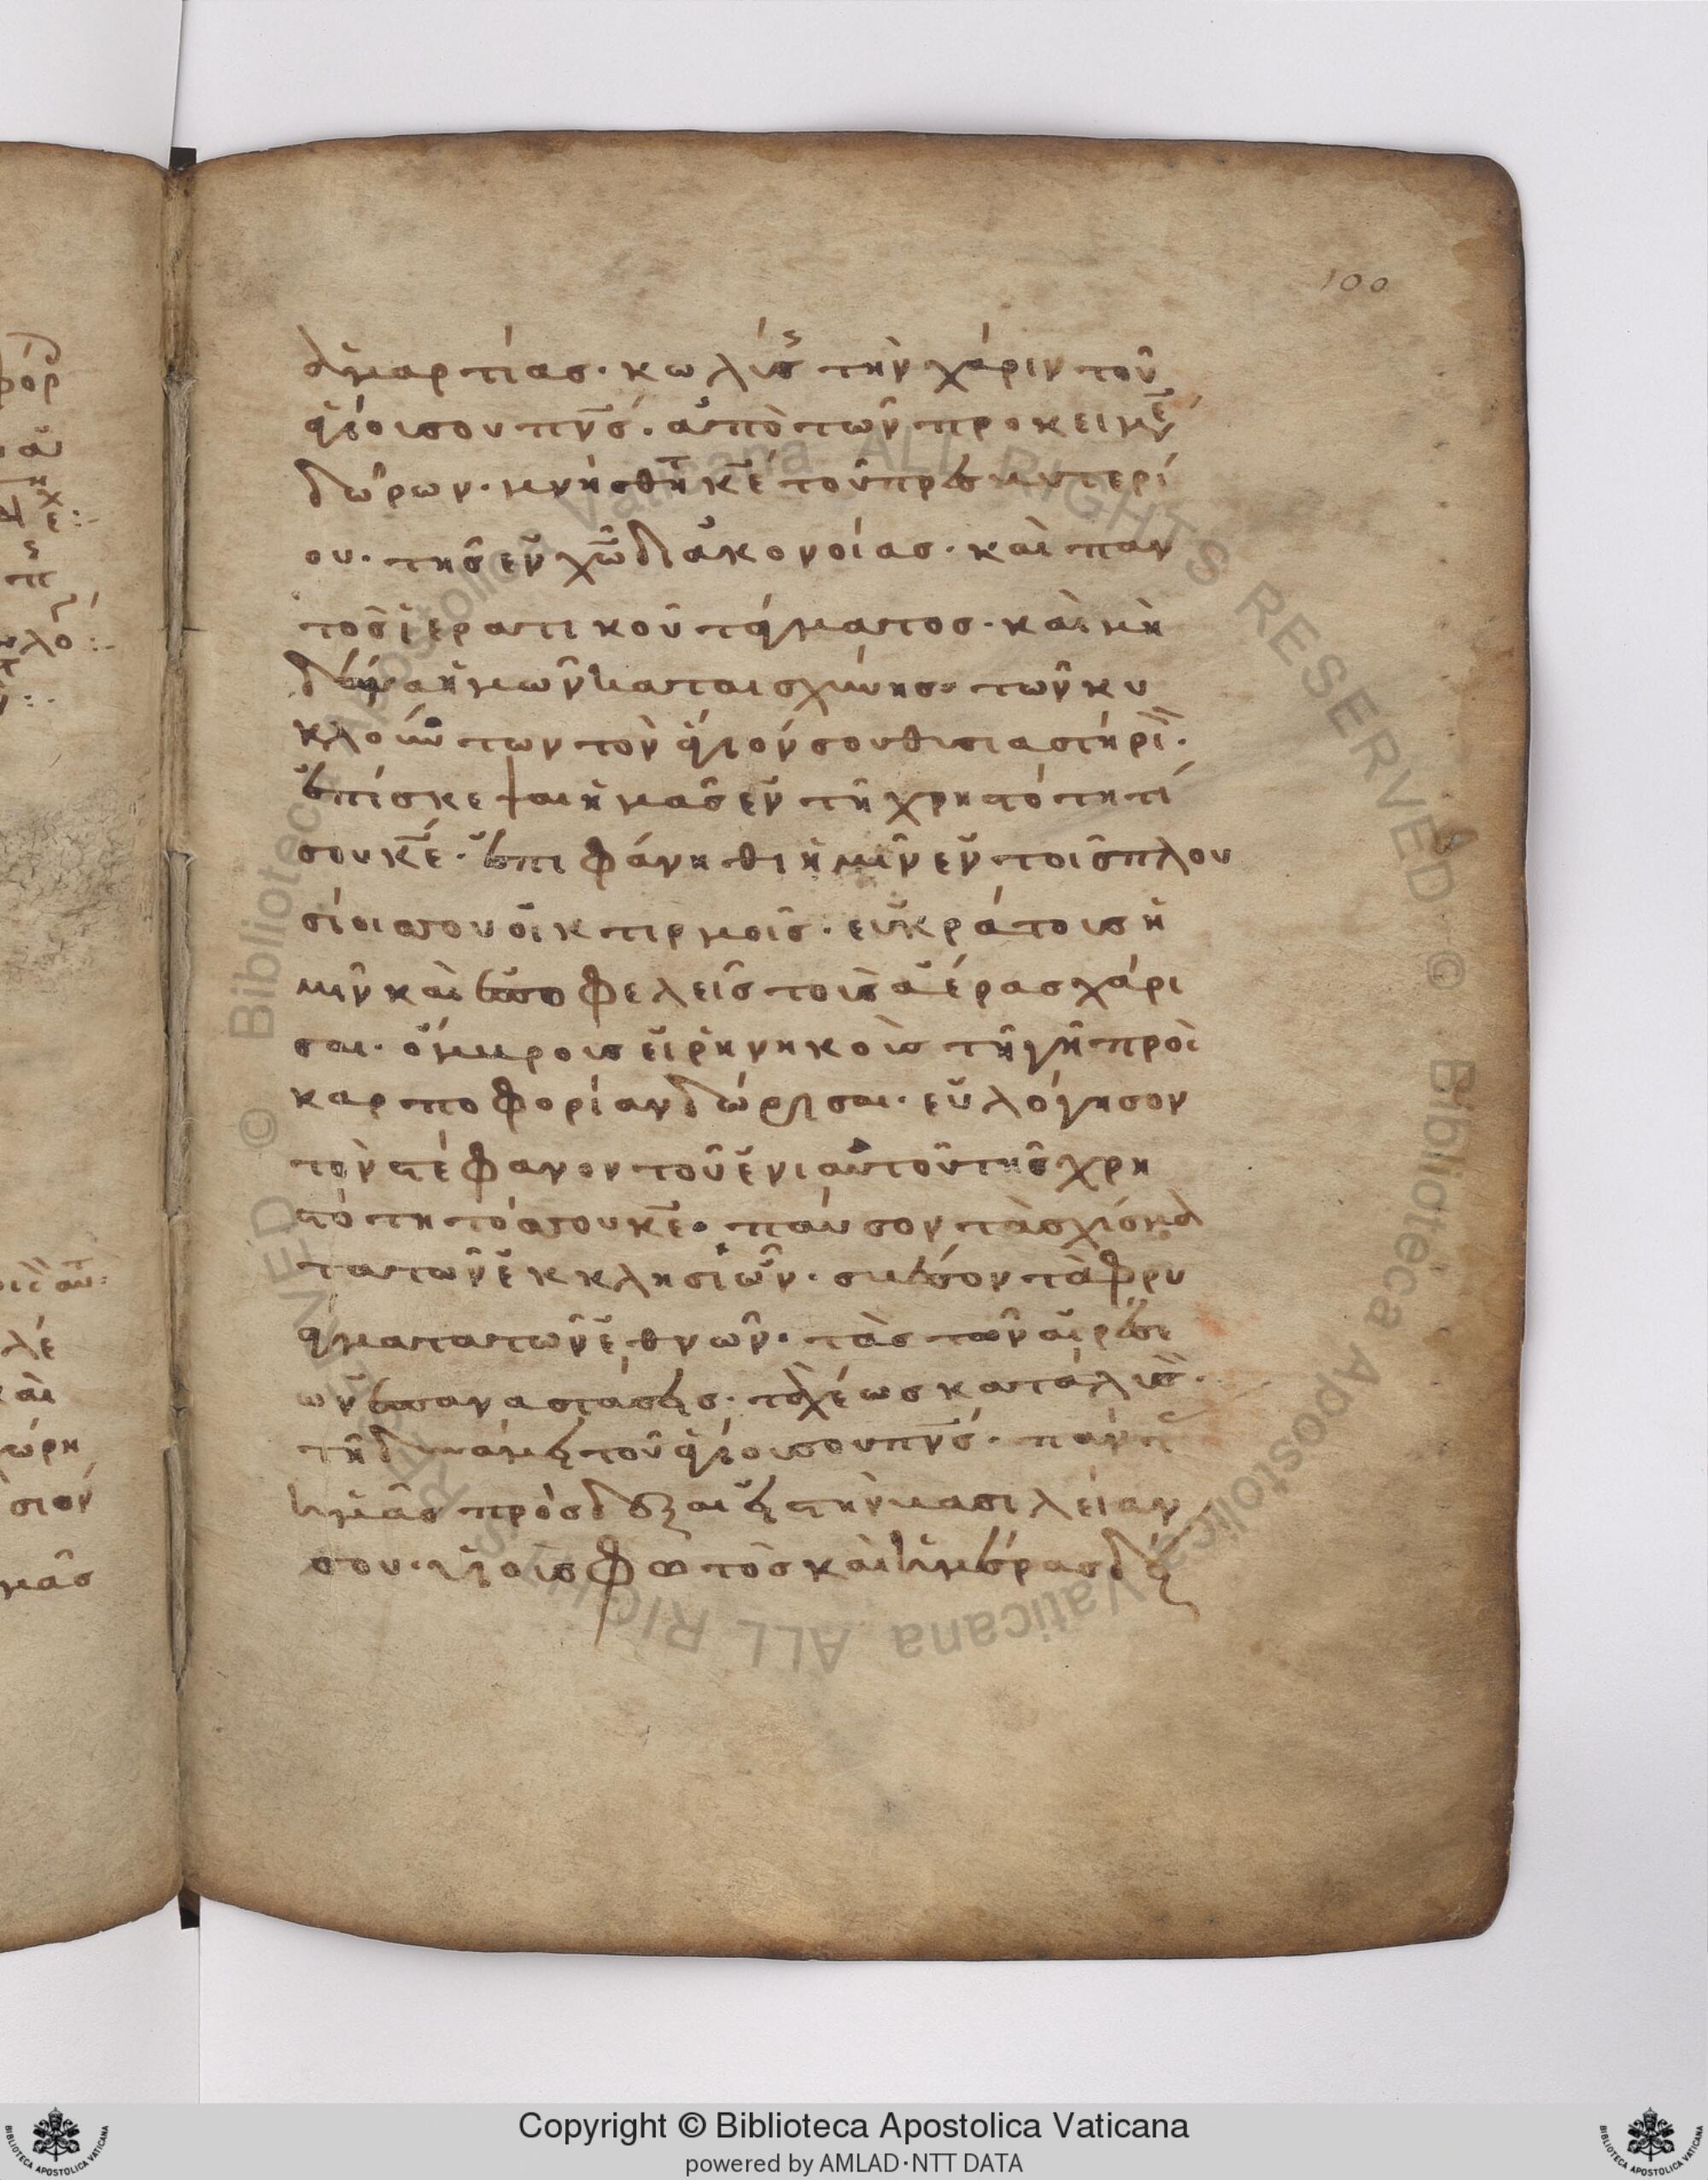 100
ἁμαρτίας· κωλύσ(ης) τὴν χάριν τοῦ
ἁγίοισου πν̅ς· ἀπὸ τῶν προκειμέ
δώρων· μνήσθητ κε̅ τοῦ πρεσβυτερί
ου· τῆς ἐν χω̅ διακονοίας· καὶ παν
τὸς ἱερατικοῦ τάγματος· καὶ μη
δένα ἡμῶν καταισχύνης· τῶν κυ
κλούντων τὸν ἅγιόν σου θυσιαστήρι
ἐπίσκεψαι ἡμᾶς ἐν τῇ χρηστότητί
σου κε̅· ἐπιφάνηθι ἡμῖν ἐν τοῖς πλου
σίοις σου οἰκτιρμοῖς· εὐκράτους ἡ
μῖν καὶ ἐποφελεῖς τοὺς ἀέρας χάρι
σαι· ὄμβρους εἰρηνηκοὺς τῇ γῇ πρὸς
καρποφορίαν δώρησαι· εὐλόγησον
τὸν στέφανον τοῦ ἐνιαυτοῦ τῆς χρη
στότητός σου κε̅· παῦσον τὰ σχίσμα
τα τῶν ἐκκλησιῶν· σβέσον τὰ φρυ
άγματα τῶν ἐθνῶν· τὰς τῶν αἱρέσε
ων ἐπαναστάσεις· ταχέως κατάλυσ
τῇ δυνάμει τοῦ ἁγίοισου πν̅ς· πάντ
ἡμᾶς πρόσδεξαι εἰς τὴν βασιλείαν
σου· υἱοὺς φωτὸς καὶ ἡμέρας
Copyright © Biblioteca Apostolica Vaticana
powered by AMLAD·NTT DATA